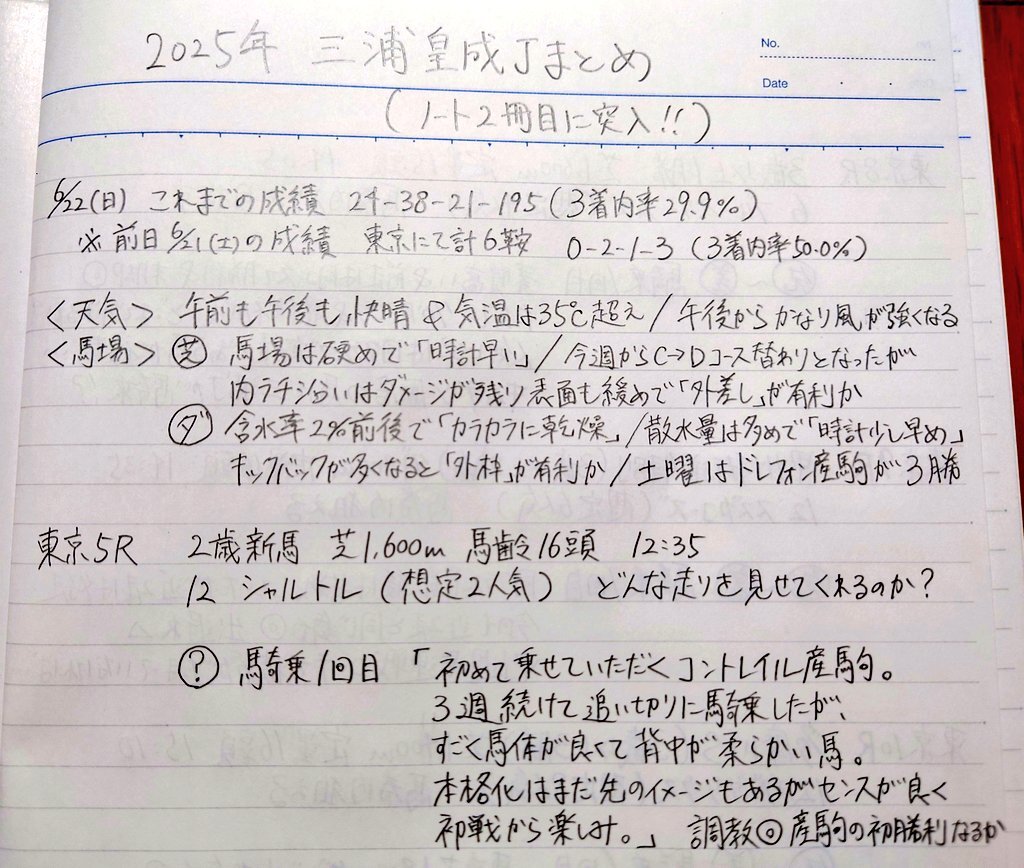 No.
Date
2025年 三浦皇成Jまとめ
(ノート2冊目に突入!!)
6/22(日) これまでの成績 24-38-21-195(3着内率29.9%)
※前日6/21(土)の成績 東京にて計6鞍 0-2-1-3 (3着内率50.0%)
<天気> 午前も午後も快晴 & 気温は35℃超え/午後からかなり風が強くなる
<馬場> 芝 馬場は硬めで「時計早い」/今週からC→Dコース替わりとなったが
内ラチ沿いはダメージが残り表面も緩めで「外差し」が有利か
ダ 含水率2%前後で「カラカラに乾燥」/散水量は多めで「時計少し早め」
キックバックが多くなると「外枠」が有利か/土曜はドレフォン産駒が3勝
東京5R 2歳新馬 芝1,600m 馬齢16頭 12:35
12 シャルトル(想定2人気) どんな走りを見せてくれるのか?
? 騎乗1回目 「初めて乗せていただくコントレイル産駒。
3週続けて追い切りに騎乗したが、
すごく馬体が良くて背中が柔らかい馬。
本格化はまだ先のイメージもあるがセンスが良く
初戦から楽しみ。」 調教◎産駒の初勝利なるか